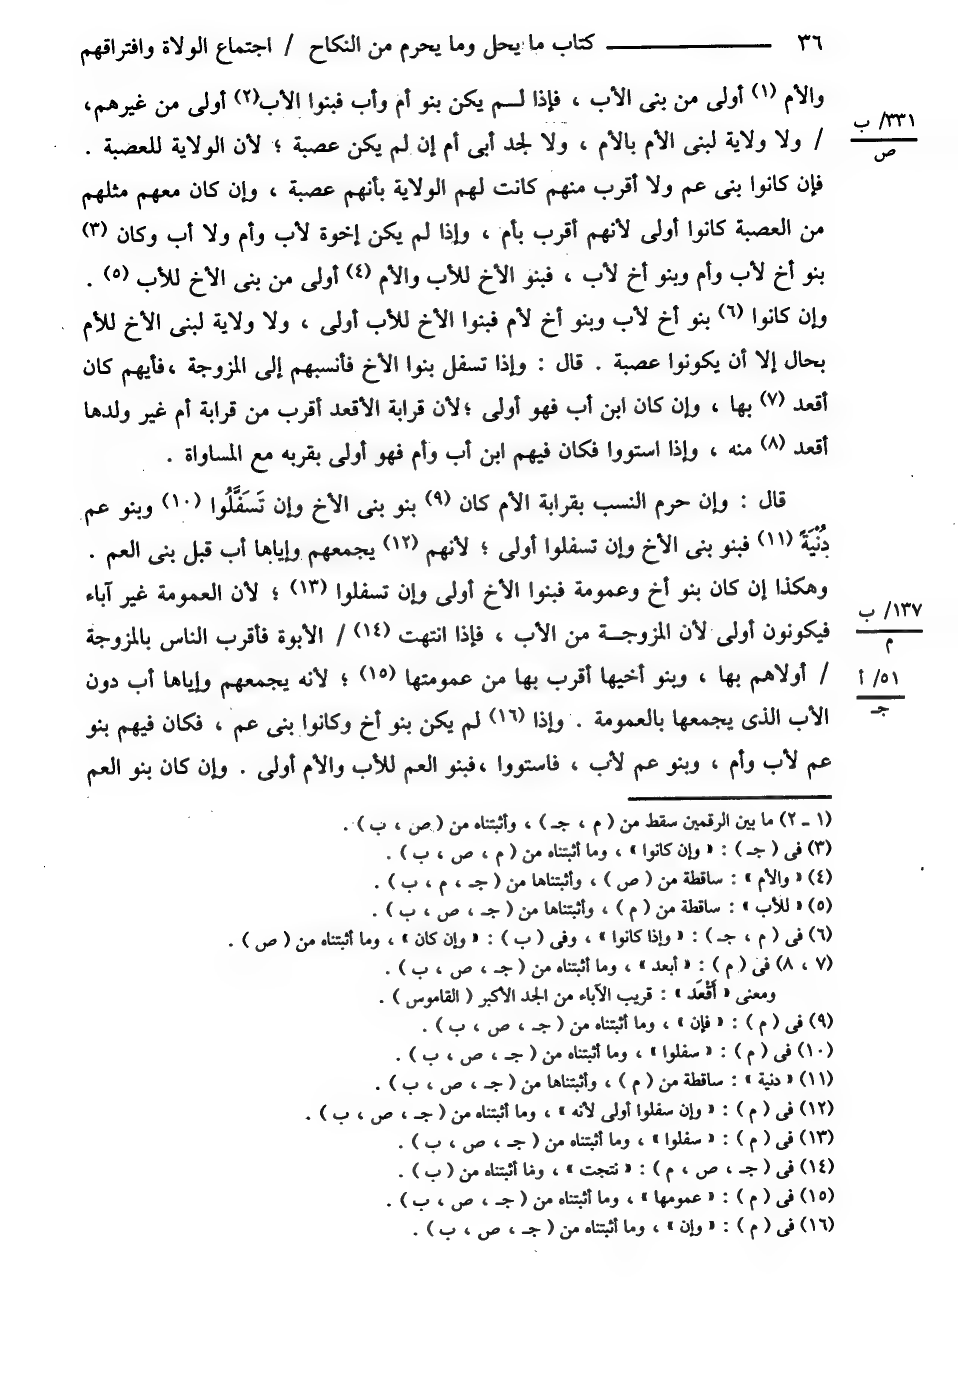 ٣٦ ــــــــ كتاب ما يحل وما يحرم من النكاح / اجتماع الولاة وافتراقهم
والأم (١) أولى من بنى الأب ، فإذا لـم يكن بنو أم وأب فبنوا الأب(٢) أولى من غيرهم،
٣٣١/ ب
ص
/ ولا ولاية لبنى الأم بالأم ، ولا لجد أبى أم إن لم يكن عصبة ؛ لأن الولاية للعصبة .
فإن كانوا بنى عم ولا أقرب منهم كانت لهم الولاية بأنهم عصبة ، وإن كان معهم مثلهم
من العصبة كانوا أولى لأنهم أقرب بأم ، وإذا لم يكن إخوة لأب وأم ولا أب وكان (٣)
بنو أخ لأب وأم وبنو أخ لأب ، فبنو الأخ للأب والأم (٤) أولى من بنى الأخ للأب (٥) .
وإن كانوا (٦) بنو أخ لأب وبنو أخ لأم فبنوا الأخ للأب أولى ، ولا ولاية لبنى الأخ للأم
بحال إلا أن يكونوا عصبة . قال : وإذا تسفل بنوا الأخ فأنسبهم إلى المزوجة ،فأيهم كان
أقعد (٧) بها ، وإن كان ابن أب فهو أولى ؛لأن قرابة الأقعد أقرب من قرابة أم غير ولدها
أقعد (٨) منه ، وإذا استووا فكان فيهم ابن أب وأم فهو أولى بقربه مع المساواة .
قال : وإن حرم النسب بقرابة الأم كان (٩) بنو بنى الأخ وإن تَسَفَّلُوا (١٠) وبنو عم
دُنْيَةً (١١) فبنو بنى الأخ وإن تسفلوا أولى ؛ لأنهم (١٢) يجمعهم وإياها أب قبل بنى العم .
وهكذا إن كان بنو أخ وعمومة فبنوا الأخ أولى وإن تسفلوا (١٣) ؛ لأن العمومة غير آباء
١٣٧/ ب
م
فيكونون أولى لأن المزوجـة من الأب ، فإذا انتهت (١٤) / الأبوة فأقرب الناس بالمزوجة
٥١/ أ
جـ
/ أولاهم بها ، وبنو أخيها أقرب بها من عمومتها (١٥) ؛ لأنه يجمعهم وإياها أب دون
الأب الذى يجمعها بالعمومة . وإذا (١٦) لم يكن بنو أخ وكانوا بنى عم ، فكان فيهم بنو
عم لأب وأم ، وبنو عم لأب ، فاستووا ،فبنو العم للأب والأم أولى . وإن كان بنو العم
(١ ـ ٢) ما بين الرقمين سقط من ( م ، جـ ) ، وأثبتناه من ( ص ، ب ) .
(٣) فى ( جـ ) : « وإن كانوا » ، وما أثبتناه من ( م ، ص ، ب ) .
(٤) « والأم » : ساقطة من ( ص ) ، وأثبتناها من ( جـ ، م ، ب ) .
(٥) « للأب » : ساقطة من ( م ) ، وأثبتناها من ( جـ ، ص ، ب ) .
(٦) فى ( م ، جـ ) : « وإذا كانوا » ، وفى ( ب ) : « وإن كان » ، وما أثبتناه من ( ص ) .
(٧ ، ٨) فى ( م ) : « أبعد » ، وما أثبتناه من ( جـ ، ص ، ب ) .
ومعنى « أَقْعَد » : قريب الآباء من الجد الأكبر ( القاموس ) .
(٩) فى ( م ) : « فإن » ، وما أثبتناه من ( جـ ، ص ، ب ) .
(١٠) فى ( م ) : « سفلوا » ، وما أثبتناه من ( جـ ، ص ، ب ) .
(١١) « دنية » : ساقطة من ( م ) ، وأثبتناها من ( جـ ، ص ، ب ) .
(١٢) فى ( م ) : « وإن سفلوا أولى لأنه » ، وما أثبتناه من ( جـ ، ص ، ب ) .
(١٣) فى ( م ) : « سفلوا » ، وما أثبتناه من ( جـ ، ص ، ب ) .
(١٤) فى ( جـ ، ص ، م ) : « نتجت » ، وما أثبتناه من ( ب ) .
(١٥) فى ( م ) : « عمومها » ، وما أثبتناه من ( جـ ، ص ، ب ) .
(١٦) فى ( م ) : « وإن » ، وما أثبتناه من ( جـ ، ص ، ب ) .